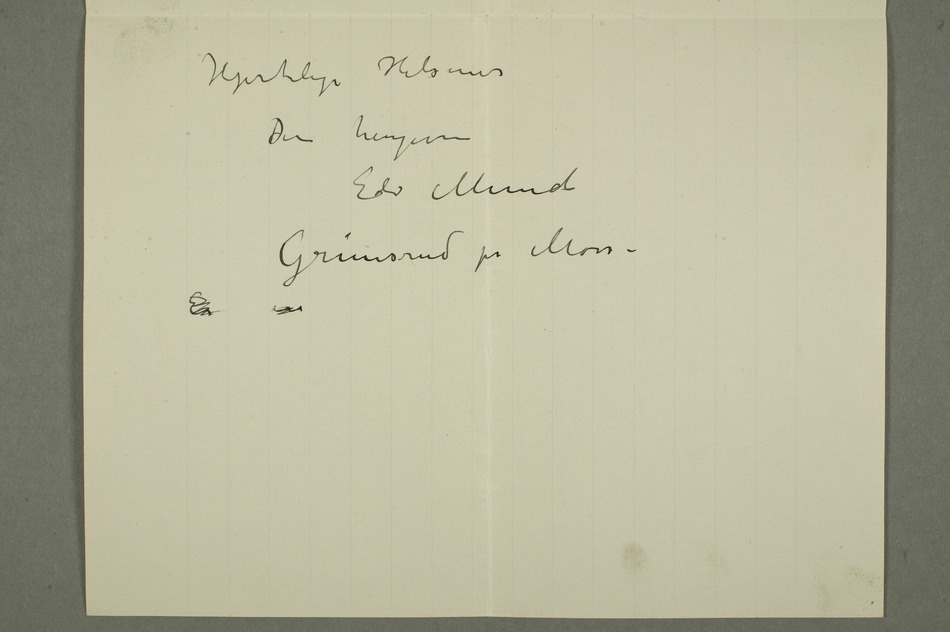 Hjertelige Hilsener
Din hengivne
Edv Munch
Grimsrud pr Moss –